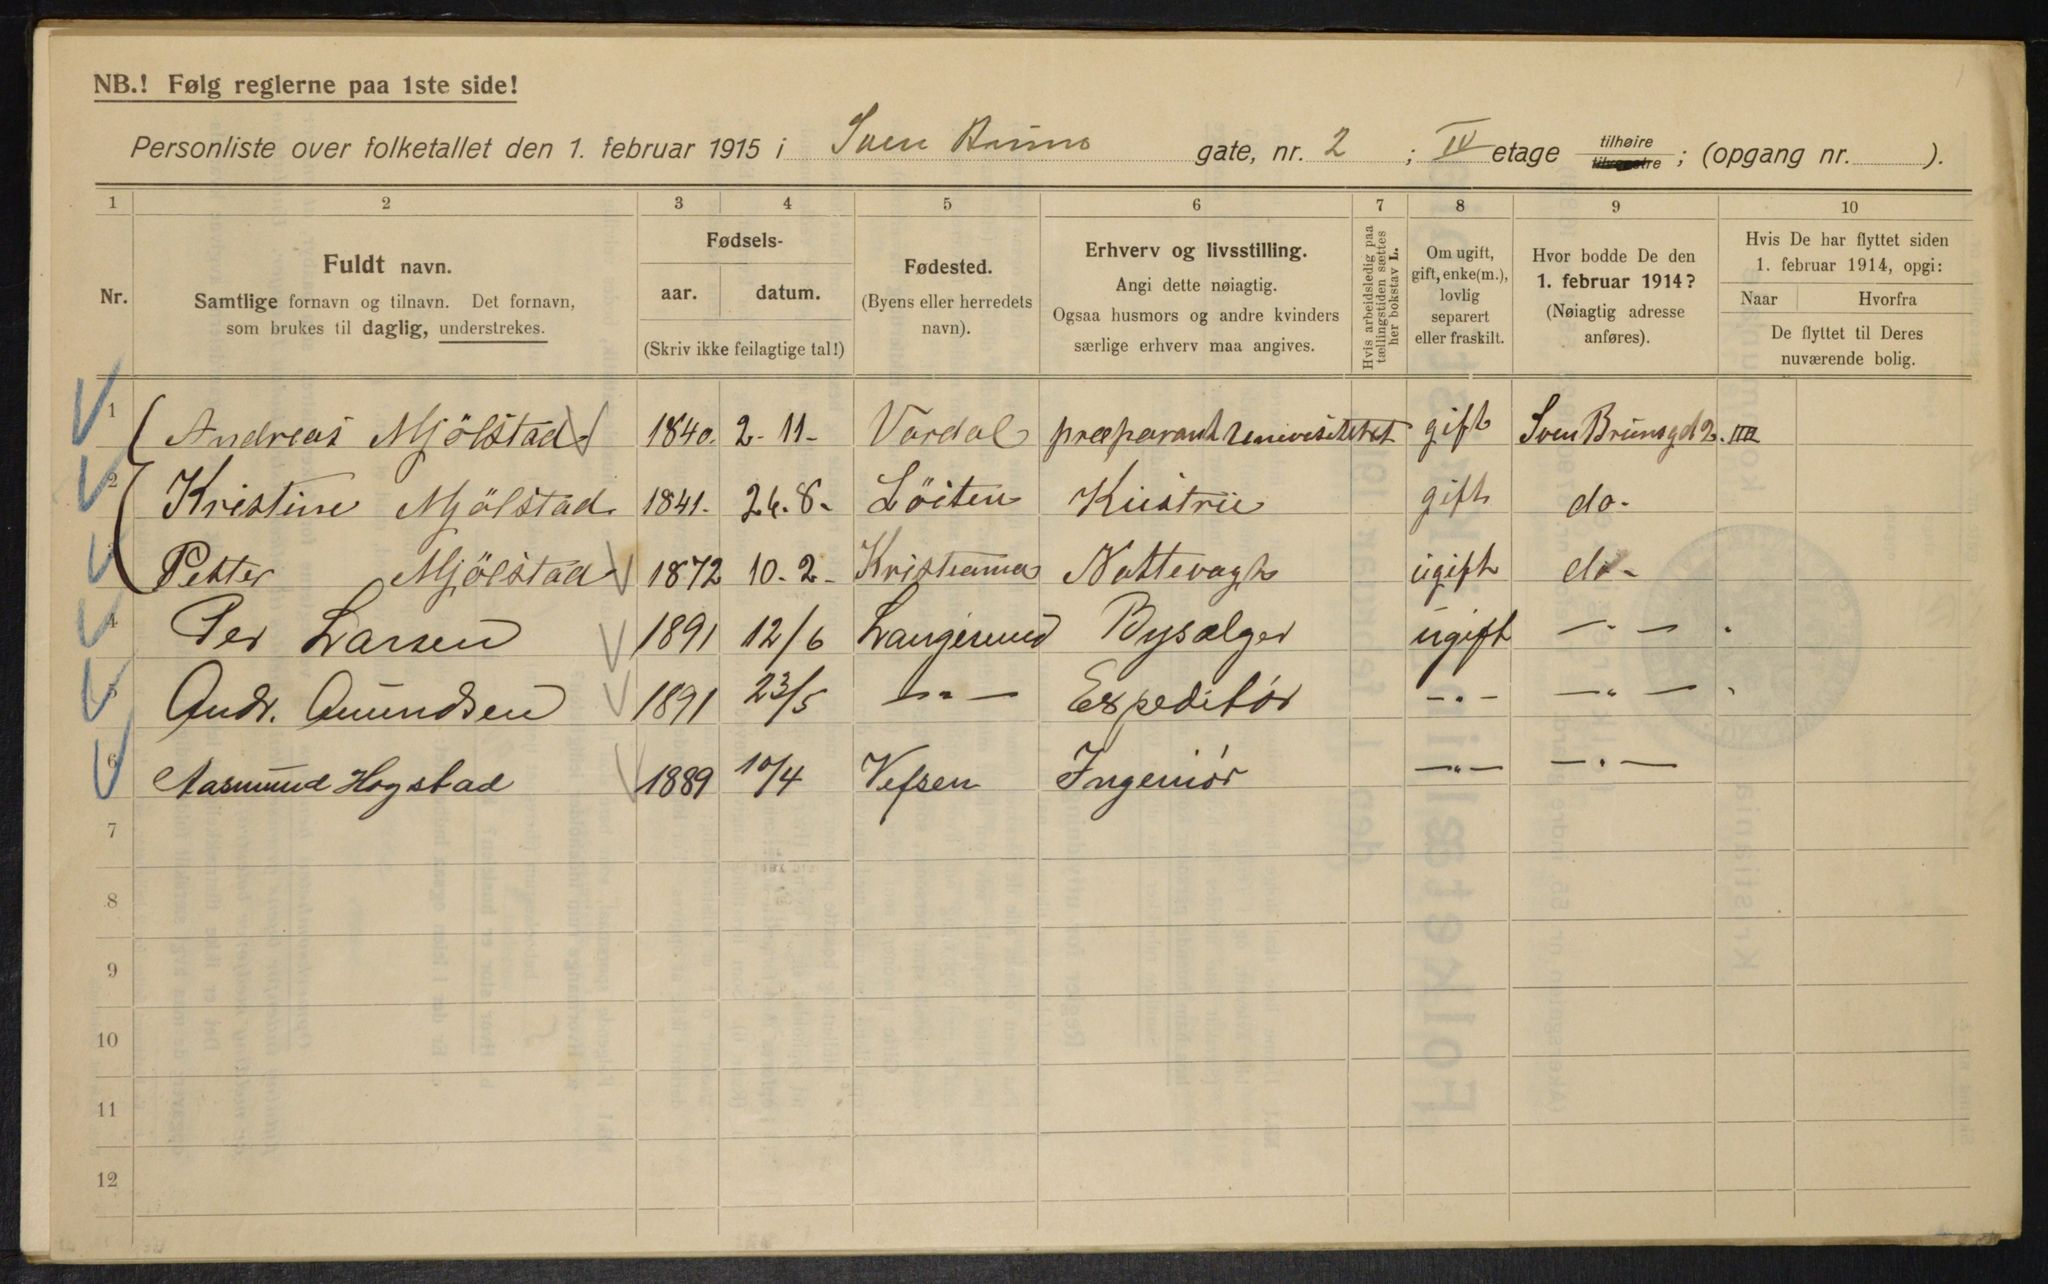 NB.! Følg reglerne paa 1ste side!
Personliste over folketallet den 1. februar 1915 i Sven Bruns gate, nr. 2 ; IV etage tilhøire tilvenstre ; (opgang nr. ).
1 2 3 4 5 6 7 8 9 10
Nr.
Fuldt navn.
Samtlige fornavn og tilnavn. Det fornavn,
som brukes til daglig, understrekes.
Fødsels-
aar. datum.
(Skriv ikke feilagtige tal!)
Fødested.
(Byens eller herredets
navn).
Erhverv og livsstilling.
Angi dette nøiagtig.
Ogsaa husmors og andre kvinders
særlige erhverv maa angives.
Hvis arbeidsledig paa
tællingstiden sættes
her bokstav L.
Om ugift,
gift, enke(m.),
lovlig
separert
eller fraskilt.
Hvor bodde De den
1. februar 1914?
(Nøiagtig adresse
anføres).
Hvis De har flyttet siden
1. februar 1914, opgi:
Naar Hvorfra
De flyttet til Deres
nuværende bolig.
1 Andreas Mjölstad 1840. 2-11- Vardal præparant Univesitetet gift Sven Brunsgt 2. IIII
2 Kristine Mjölstad. 1841. 26.8- Löiten Hüstrü gift do-
3 Petter Mjölstad 1872 10-2- Kristiania Nattevagt ügift do-
4 Per Larsen 1891 12/6 Langesund Bysælger ugift —"—
5 Andr. Amundsen 1891 23/5 —"— Expeditør —"— —"—
6 Aasmund Hogstad 1889 10/4 Vefsen Ingeniør —"— —"—
7
8
9
10
11
12